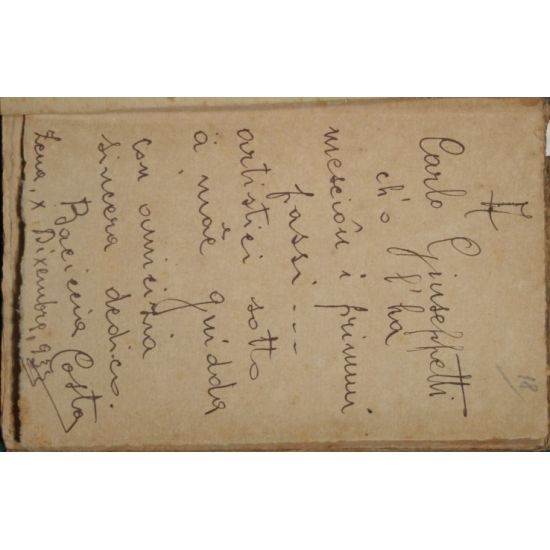 A
Carlo Giuseppetti
ch'o l'ha
mesciôu i primmi
passi ...
artistici sotto
a mæ guidda
con amicizia
sincera dedico.
Baciccia Costa
Zena, X Dixembre, 933
18